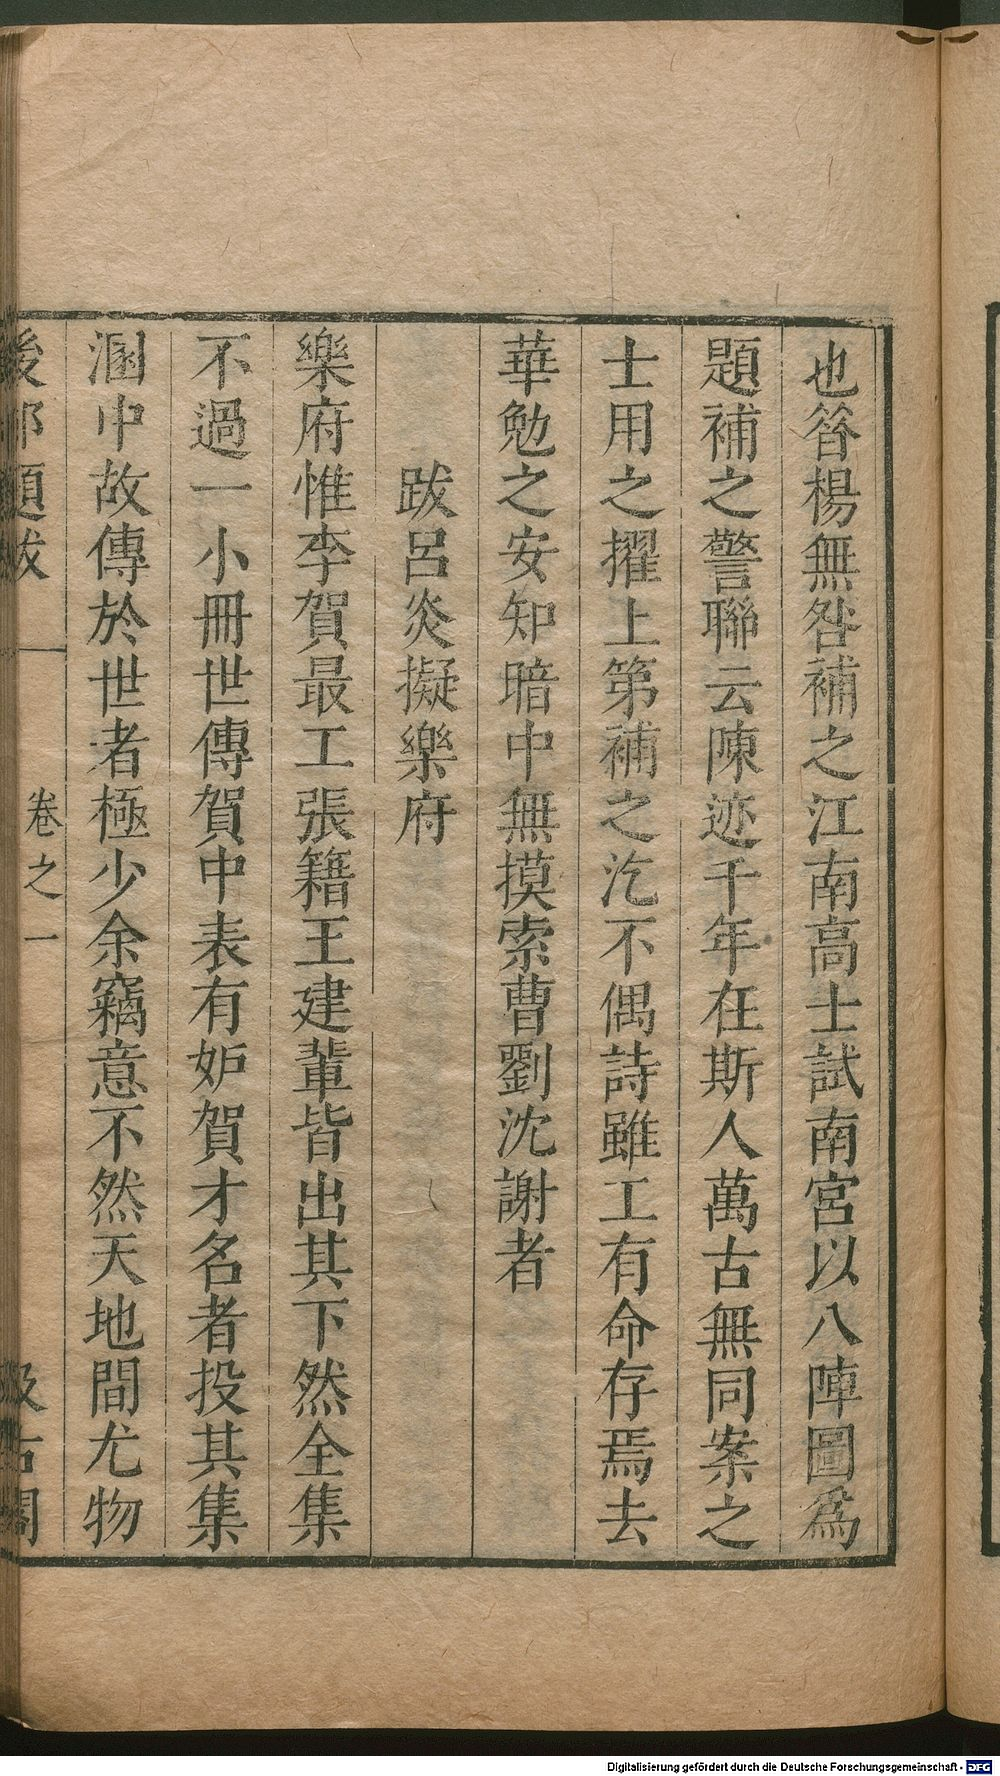 也昝楊無咎補之江南高士試南宮以八陣圖爲
題補之警聯云陳迹千年在斯人萬古無同案之
士用之擢上第補之汔不偶詩雖工有命存焉去
華勉之安知暗中無摸索曹劉沈謝者
跋呂炎擬樂府
樂府惟李賀最工張籍王建輩皆出其下然全集
不過一小冊世傳賀中表有妒賀才名者投其集
溷中故傳於世者極少余竊意不然天地間尤物
後邨題跋 卷之一 汲古閣
Digitalisierung gefördert durch die Deutsche Forschungsgemeinschaft - DFG